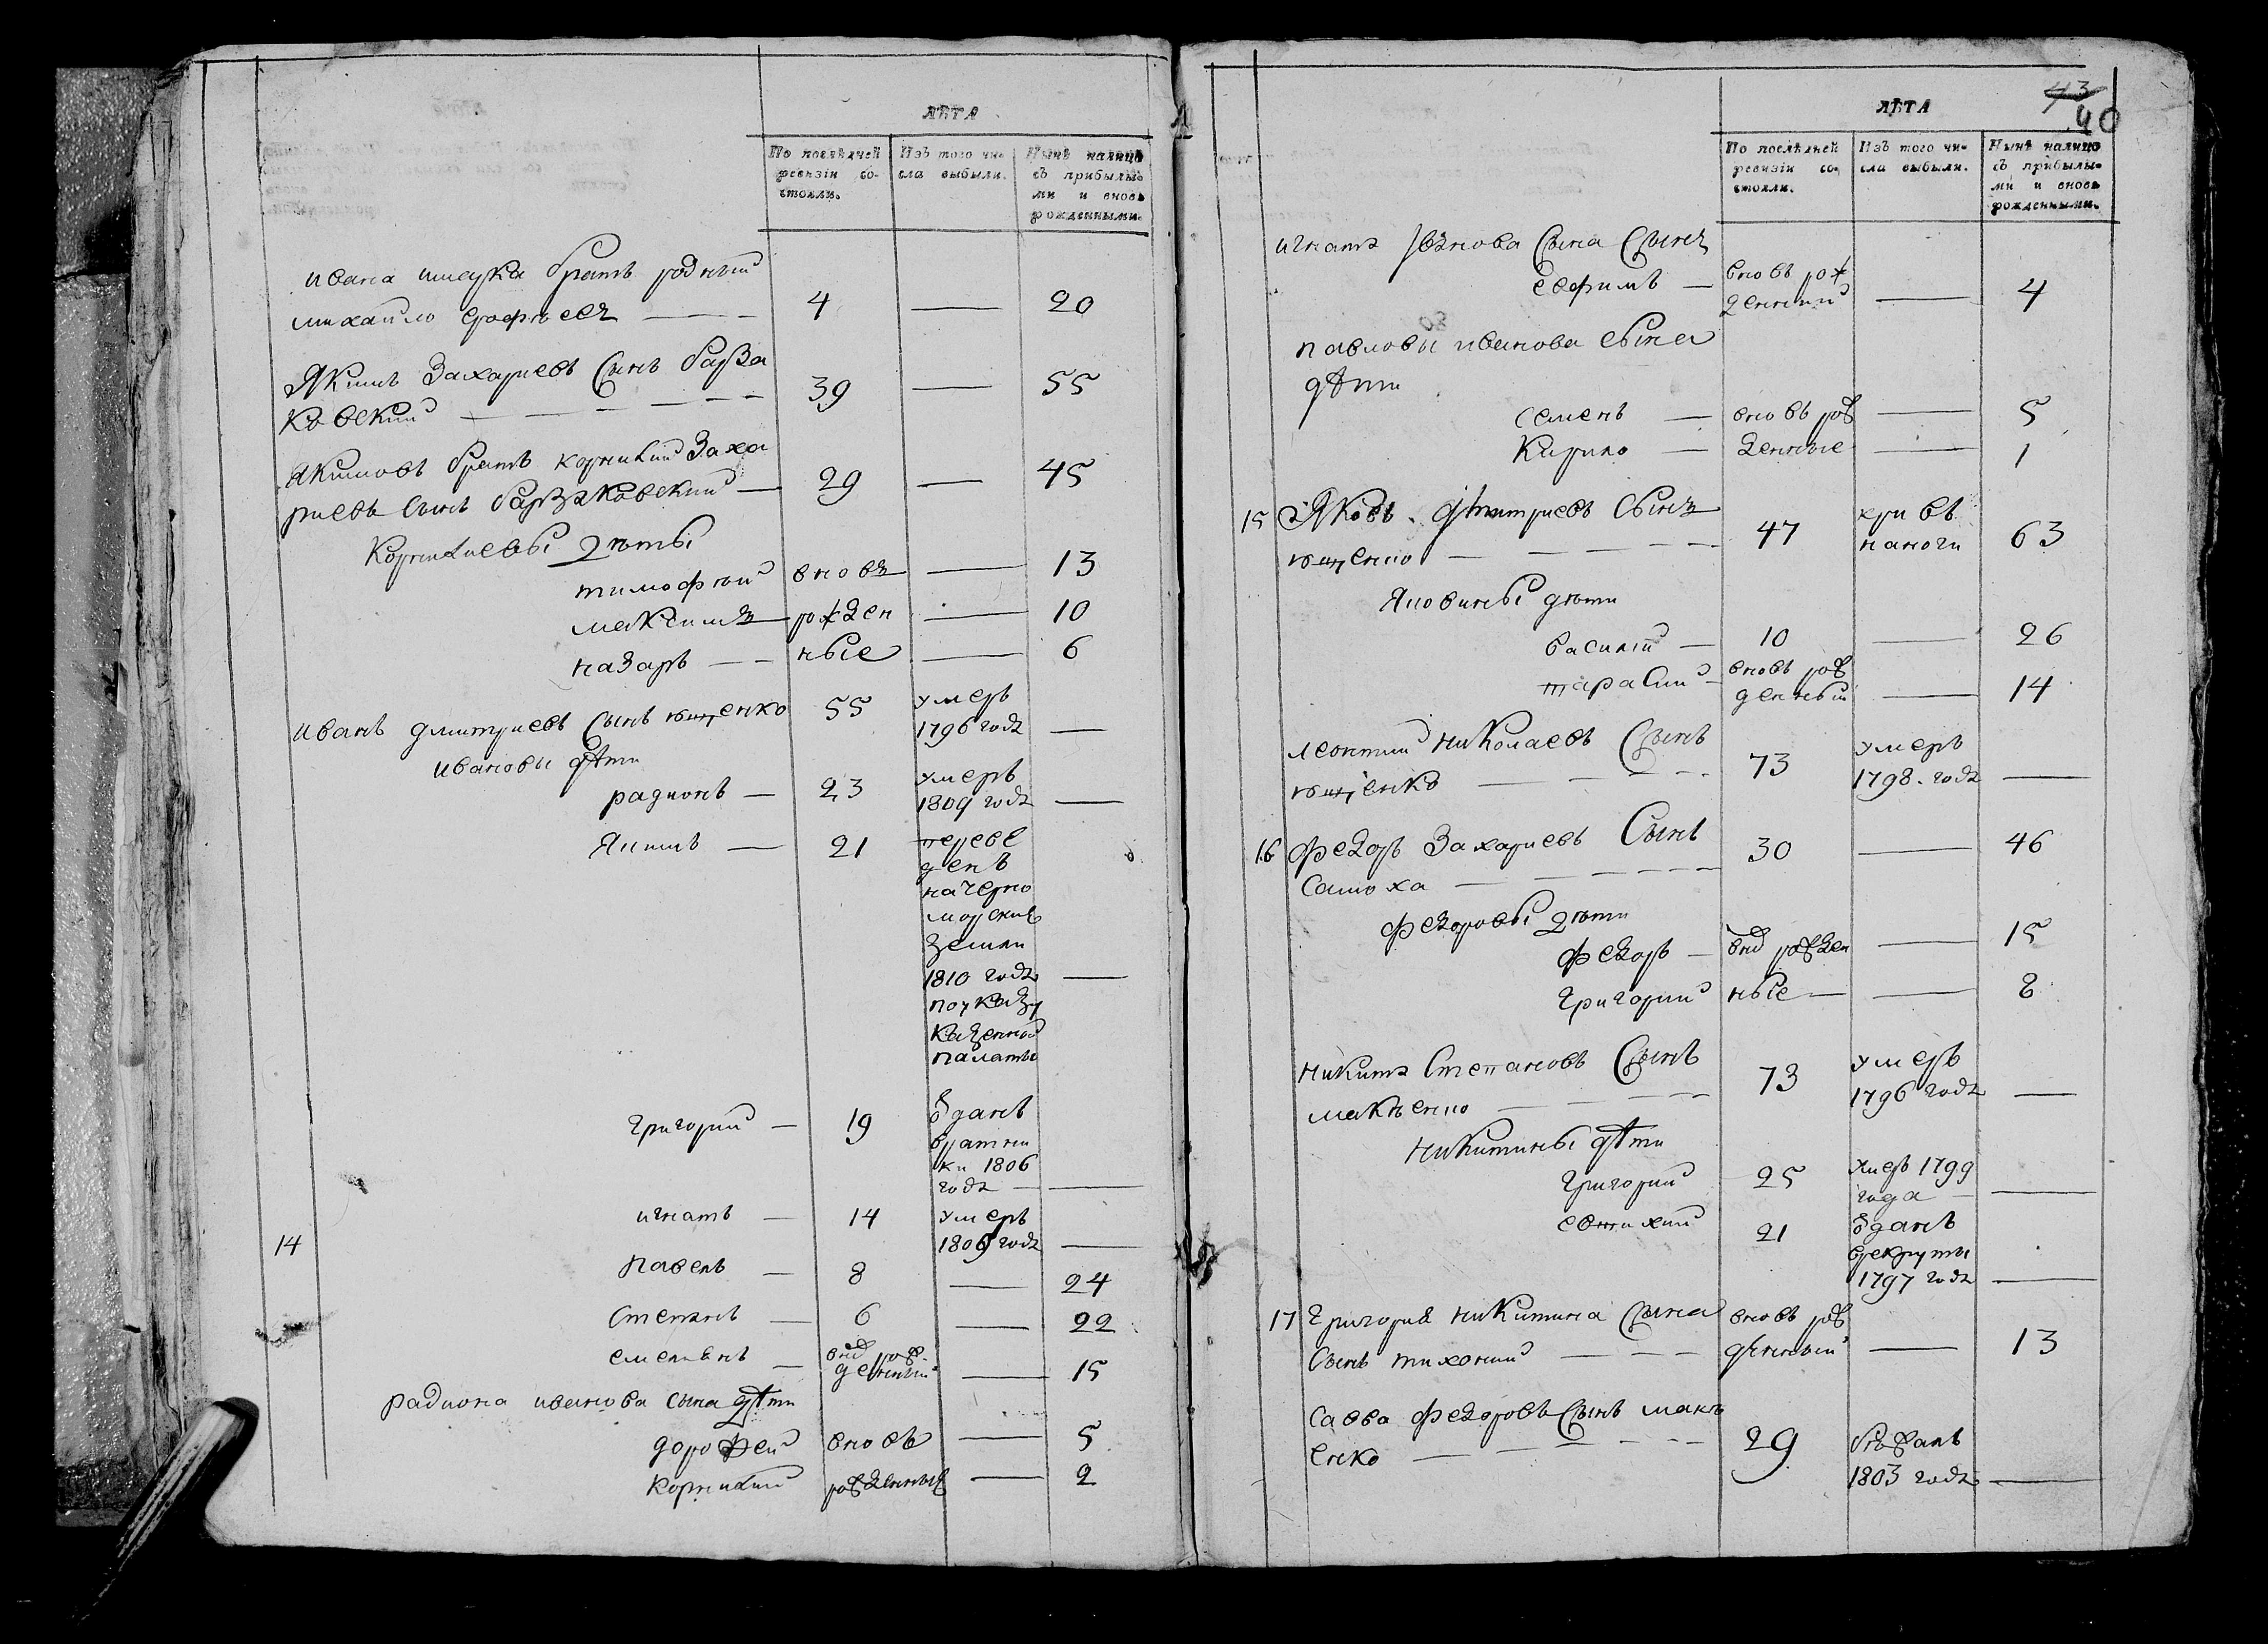 ЛѢТА
По послѣдней ревизіи состояли.
Изъ того числа выбыли.
Нынѣ налицо съ прибылыми и вновь рожденными.
ивана братъ родный
михайло 4 — 20
Якимъ Захариевъ сынъ
ковский 39 — 55
Якимовъ братъ корнилий Заха
риевъ сынъ 29 — 45
Корнилиевы дѣты
тимофѣй вновъ — 13
максимъ рожден — 10
назаръ — ные — 6
иванъ дмитриевъ сынъ ющенко 55 умеръ
1796 годъ —
ивановы дѣти
радионъ — 23 умеръ
1809 годъ —
Якимъ — 21 переве
денъ
на черно
морские
земли
1810 годъ —
по указу
казенной
палаты
григорий — 19 одань
врекрут
1806
годъ —
игнатъ — 14 умеръ
1809 годъ —
14 павелъ — 8 — 24
Степанъ — 6 — 22
емелянъ — внов рож
денный — 15
радиона иванова сына дѣти
дорофей вновъ — 5
корнилий рожденные — 2
43
40
ЛѢТА
По послѣдней ревизіи состояли.
Изъ того числа выбыли.
Нынѣ налицо съ прибылыми и вновь рожденными.
игната иванова сына сынъ
евфимъ — вновъ рож
денный — 4
павловы иванова сына
дѣти
семенъ — вновъ рож — 5
Кирило — денные — 1
15 Яковъ дмитриевъ сынъ
ющенко — 47 кривъ
на ноги 63
Яковины дѣти
василий — 10 — 26
тарасий — вновъ рож
денный — 14
леонтий николаевъ сынъ
ющенко — 73 умеръ
1798. годъ —
16 федоръ Захариевъ Сынъ
Самоха — 30 — 46
федоровы дѣти
федоръ — внов рожден — 15
григорий ные — — 8
никита степановъ сынъ
макѣенко — 73 умеръ
1796 годъ —
никитины дѣти
григорий 25 умеръ 1799
года —
евтихий 21 одань
врекруты
1797 годъ —
17 григория никитина сына вновъ рож
сынъ тихоний — денный — 13
савва федоровъ сынъ макѣ
енко — 29 бѣжалъ
1803 годъ —